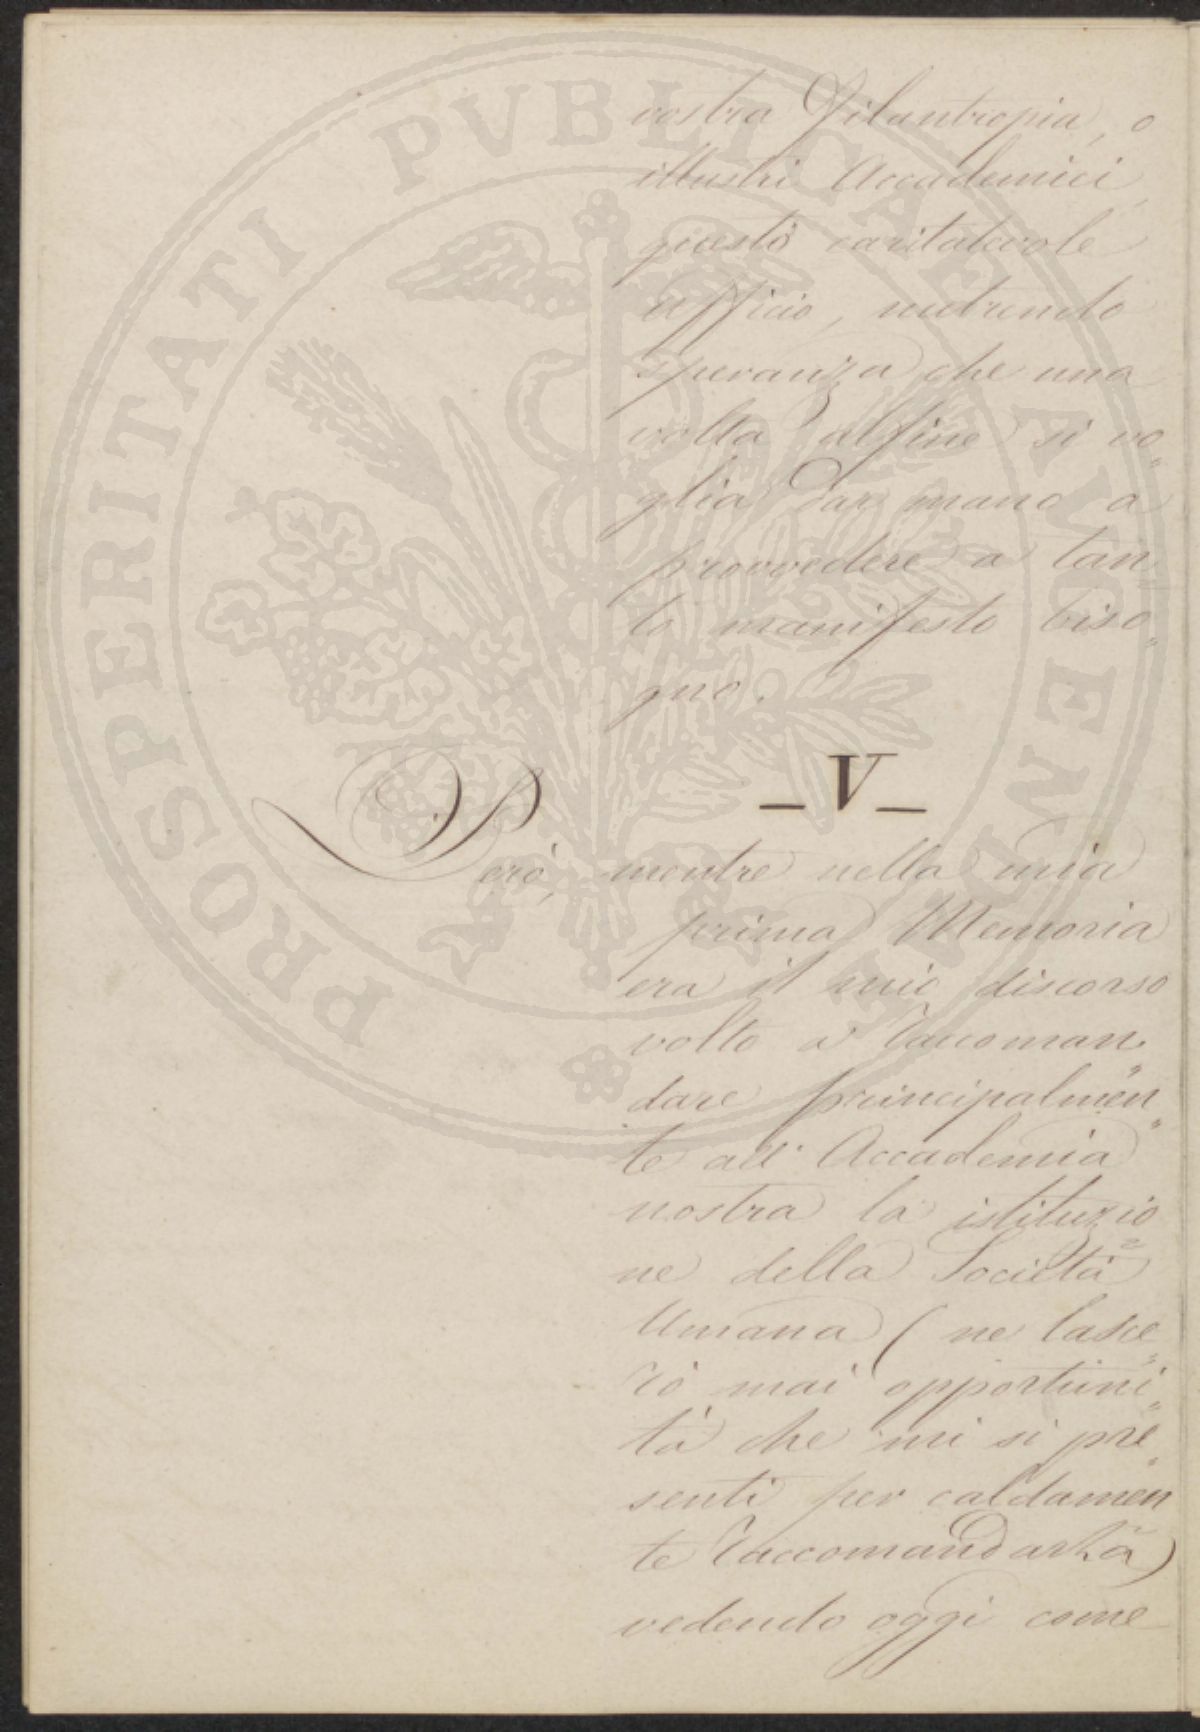 PROSPERITATI PVBLICAE AVGENDAE
vostra Filantropia, o
illustri Accademici,
questo caritatevole
ufficio, nutrendo
speranza che una
volta alfine si vo„
glia dar mano a
provvedere a tan„
to manifesto biso„
gno.
_ V _
Però, mentre nella mia
prima Memoria
era il mio discorso
volto a raccoman„
dare principalmen„
te all' Accademia
nostra la istituzio„
ne della Società
Umana (ne lasce„
rò mai opportuni„
tà che mi si pre„
senti per caldamen„
te raccomandarla)
vedendo oggi come